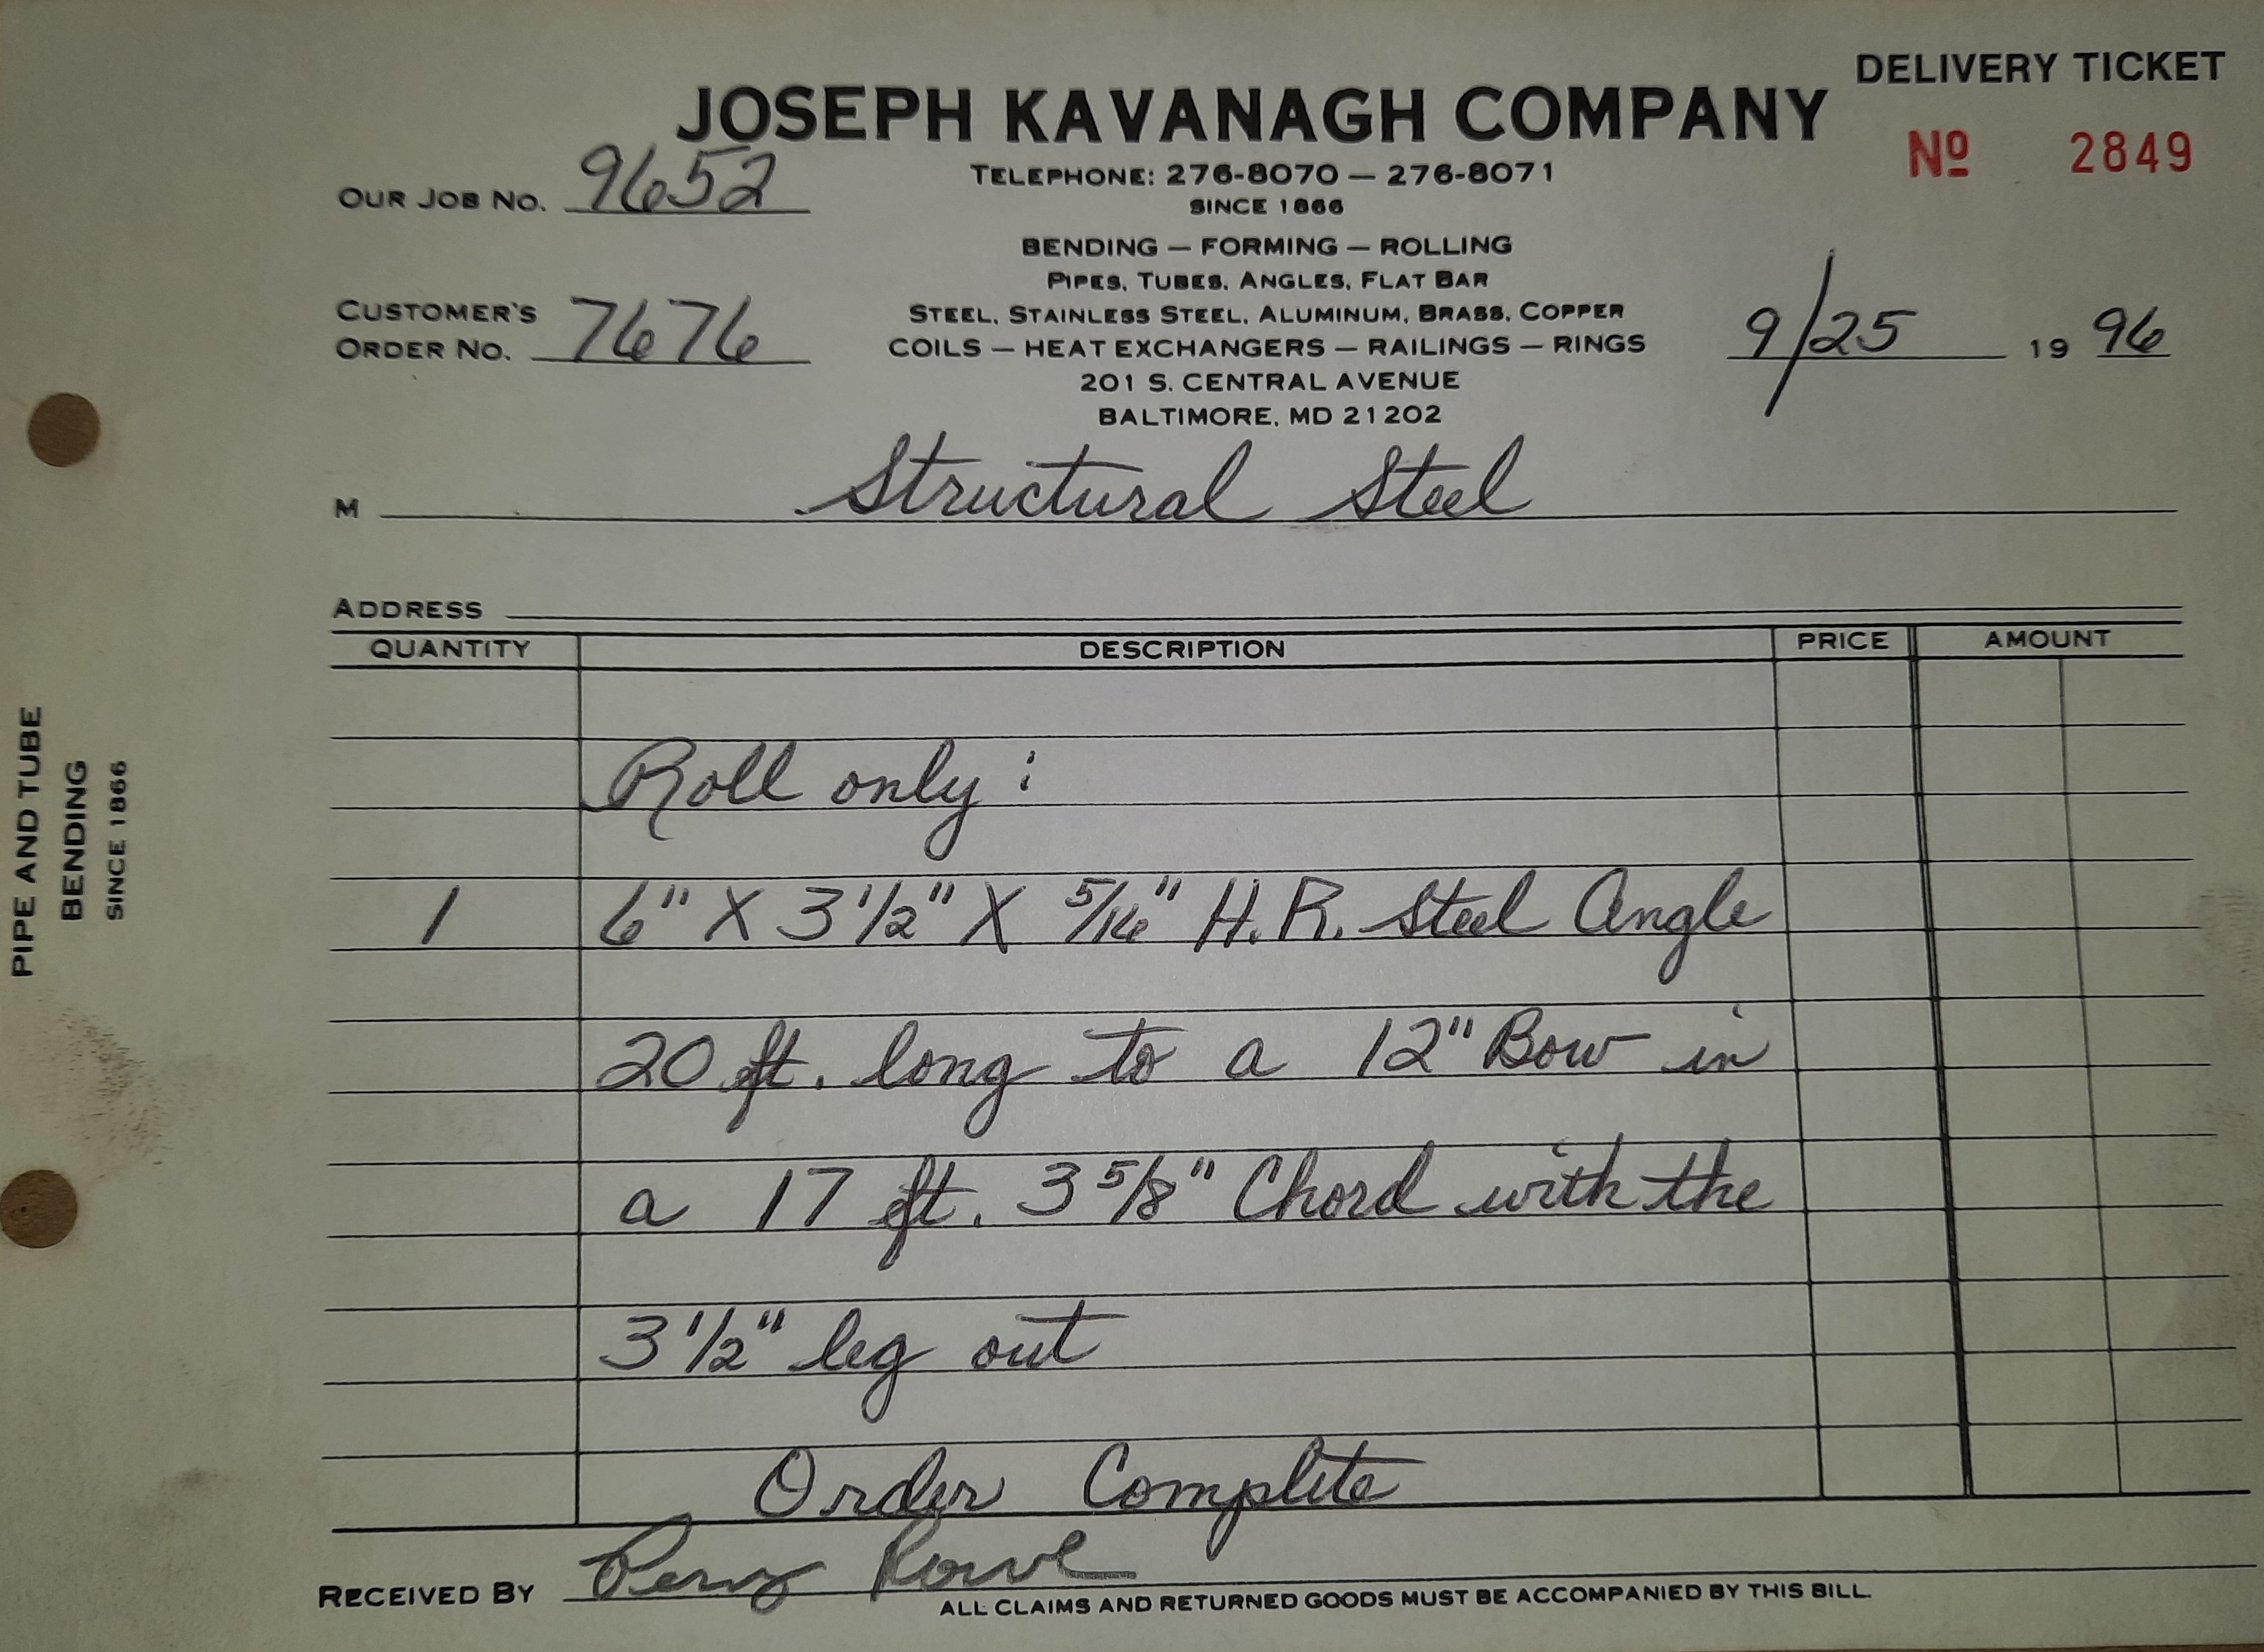 DELIVERY TICKET
JOSEPH KAVANAGH COMPANY
Nº 2849
OUR JOB NO. 9652
TELEPHONE: 276-8070 — 276-8071
SINCE 1866
BENDING — FORMING — ROLLING
PIPES, TUBES, ANGLES, FLAT BAR
CUSTOMER'S
ORDER NO. 7676
STEEL, STAINLESS STEEL, ALUMINUM, BRASS, COPPER
COILS — HEAT EXCHANGERS — RAILINGS — RINGS
9/25 19 96
201 S. CENTRAL AVENUE
BALTIMORE, MD 21202
M Structural Steel
ADDRESS
QUANTITY DESCRIPTION PRICE AMOUNT
Roll only:
1 6" X 3 1/2" X 5/16" H.R. Steel Angle
20 ft. long to a 12" Bow in
a 17 ft. 3 5/8" Chord with the
3 1/2" leg out
Order Complete
RECEIVED BY Perry Rowe
ALL CLAIMS AND RETURNED GOODS MUST BE ACCOMPANIED BY THIS BILL.
PIPE AND TUBE
BENDING
SINCE 1866